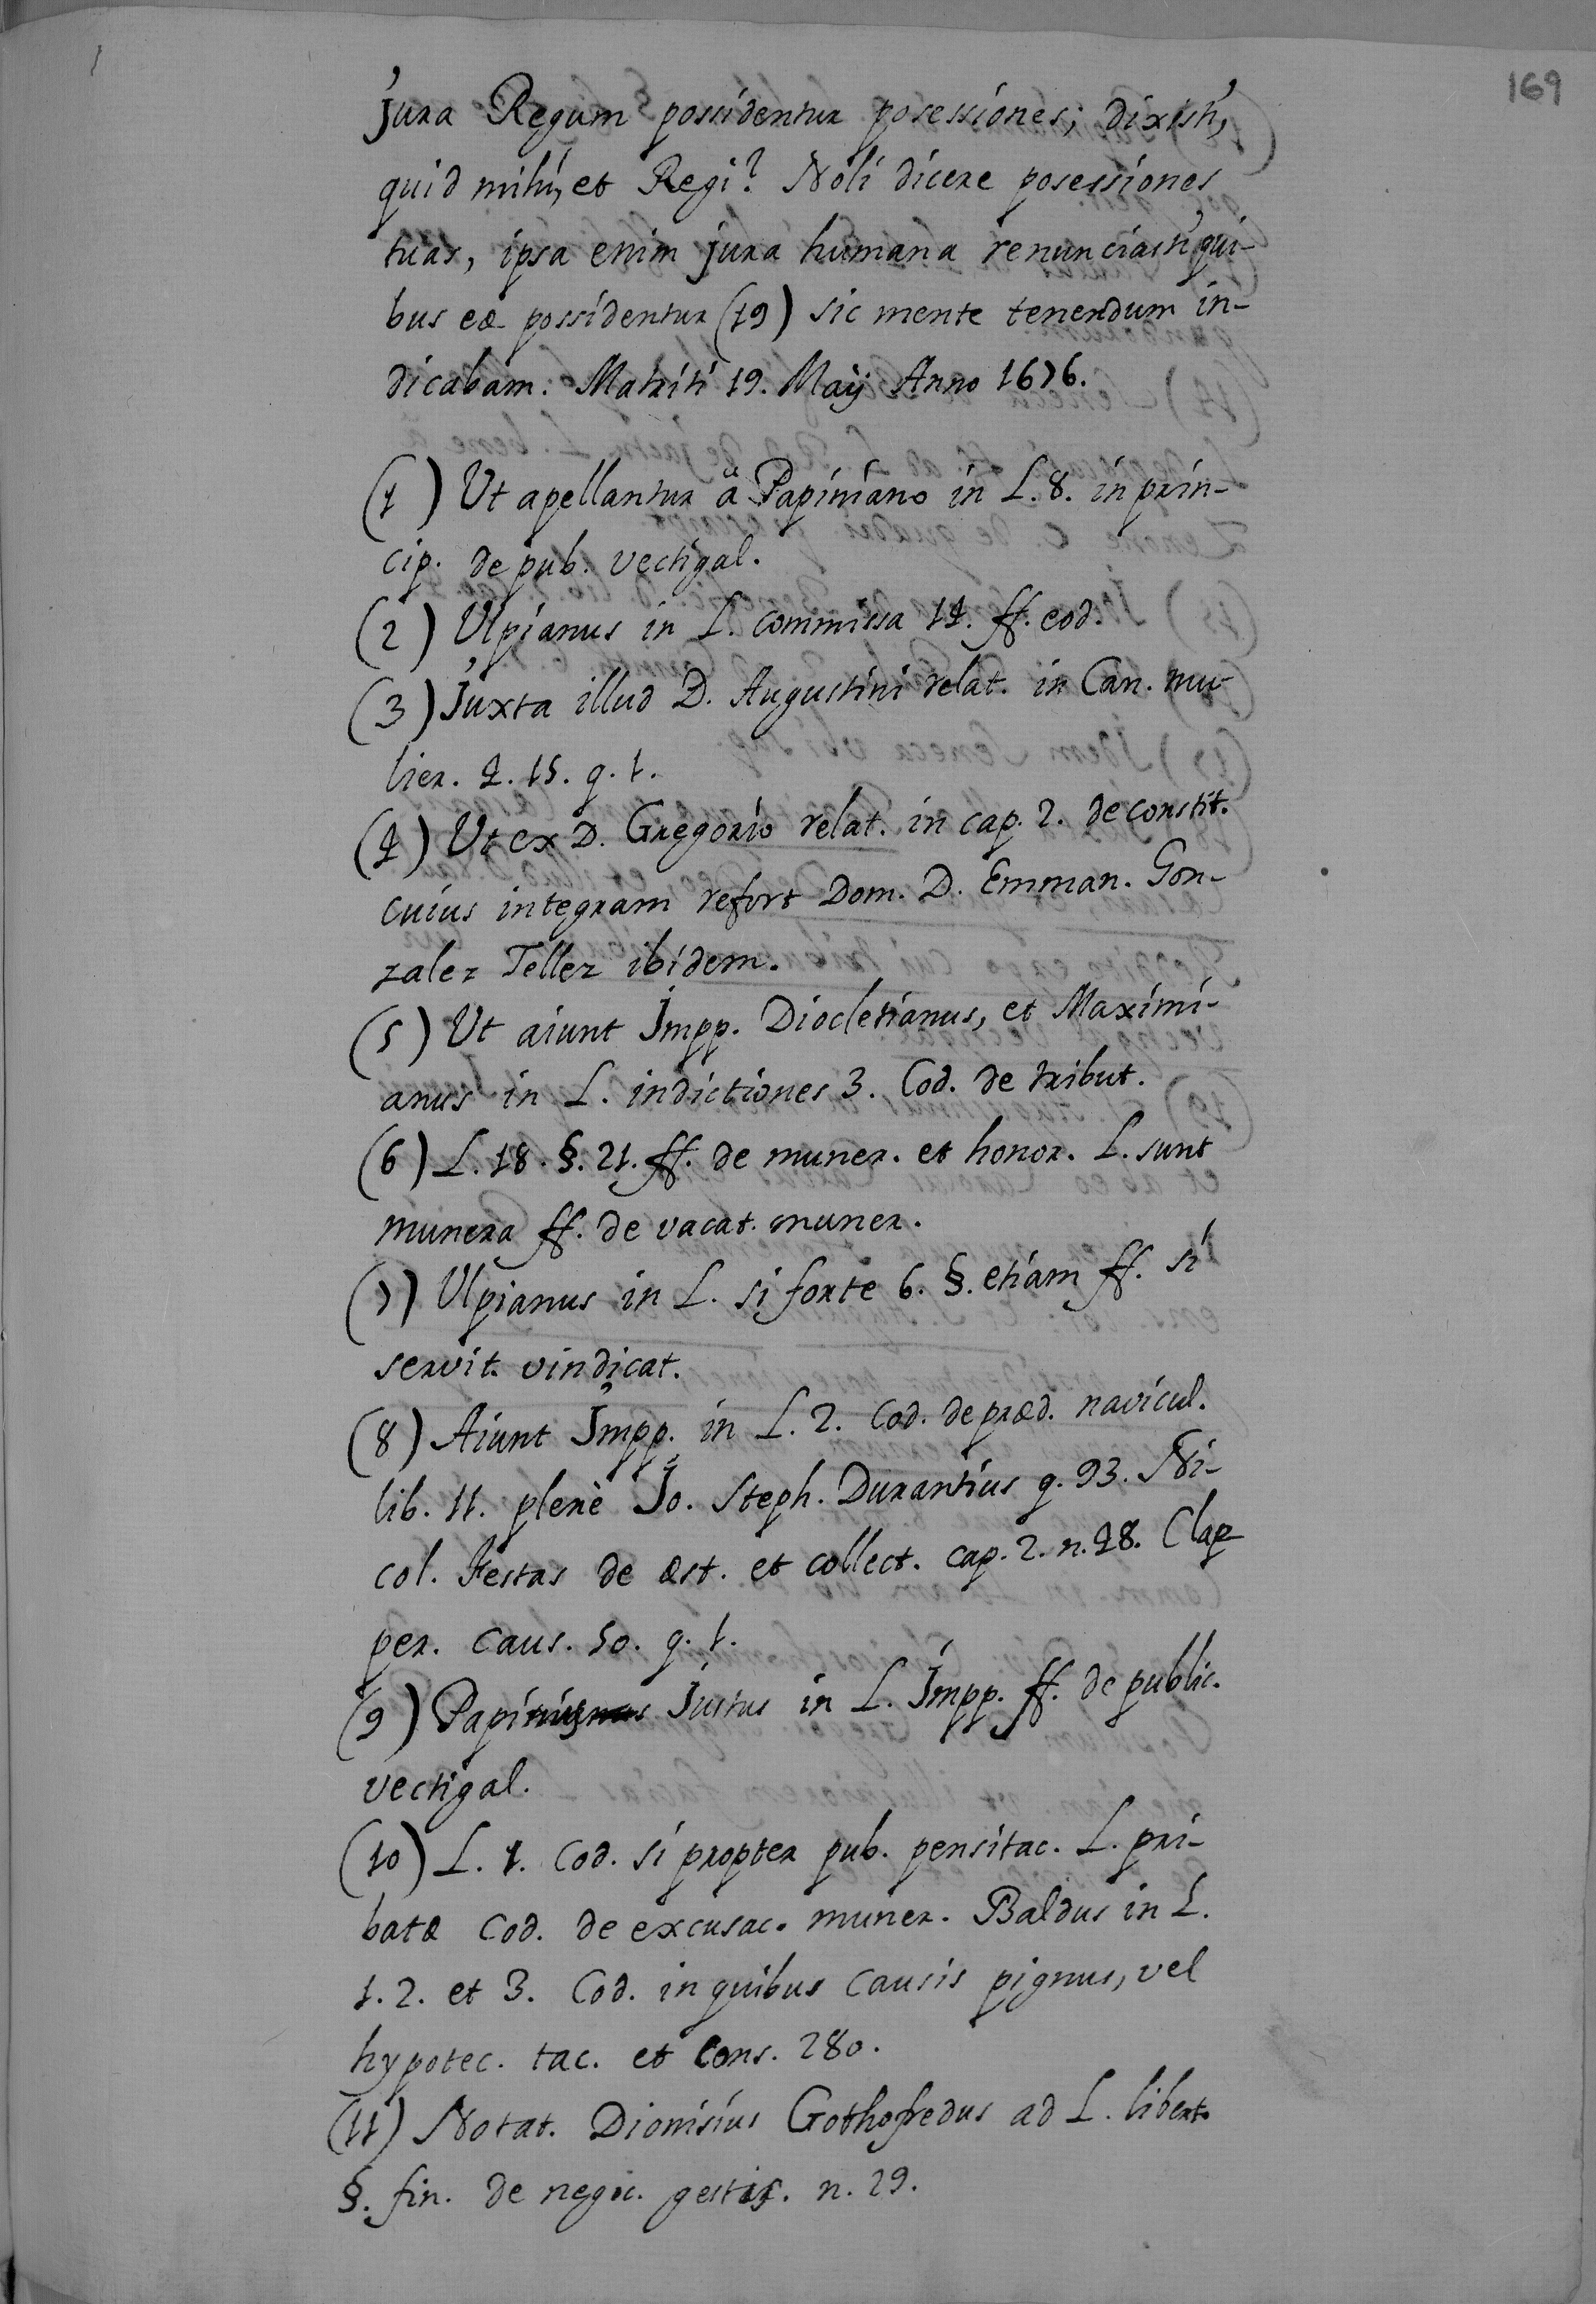 169
Jura Regum possidentur posessiones; dixisti,
quid mihi, et Regi? Noli dicere posessiones
tuas, ipsa enim jura humana renunciasti qui-
bus eæ possidentur (19) sic mente tenendum in-
dicabam. Matriti 19. Maÿ Anno 1676.
(1) Ut apellantur â Papiniano in L. 8. in prin-
cip. de pub. vectigal.
(2) Ulpianus in L. commissa 14. ff. eod.
(3) Juxta illud D. Augustini relat. in Can. mu-
lier. 4. 15. q. 1.
(4) Ut ex D. Gregorio relat. in cap. 2. de constit.
cuius integram refort Dom. D. Emman. Gon-
zalez Tellez ibidem.
(5) Ut aiunt Impp. Diocletianus, et Maximi-
anus in L. indictiones 3. Cod. de tribut.
(6) L. 18. §. 21. ff. de muner. et honor. L. sunt
munera ff. de vacat. muner.
(7) Ulpianus in L. si forte 6. §. etiam ff. si
servit. vindicat.
(8) Aiunt Impp. in L. 2. Cod. de præd. navicul.
lib. 11. plenè Jo. Steph. Durantius q. 93. Ni-
col. Festas de æst. et collect. cap. 2. n. 48. Clap-
per. caus. 50. q. 1.
(9) Papi Justus in L. Impp. ff. de public.
vectigal.
(10) L. 1. Cod. si propter pub. pensitac. L. pri-
batæ Cod. de excusac. muner. Baldus in L.
1. 2. et 3. Cod. in quibus causis pignus, vel
hypotec. tac. et Cons. 280.
(11) Notat. Dionisius Gothofredus ad L. libert.
§. fin. de negoc. gestis. n. 29.